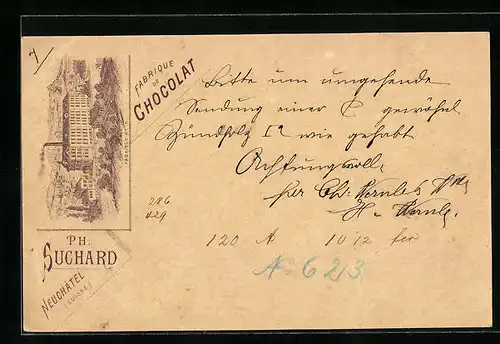 7
FABRIQUE
DE
CHOCOLAT
PH. SUCHARD
NEUCHATEL
(SUISSE)
Bitte um umgehende
Sendung einer gewöhnl
Zündholz Iª wie gehabt
Achtungsvoll
per
H.
286
429
120 A 10 12
A 623